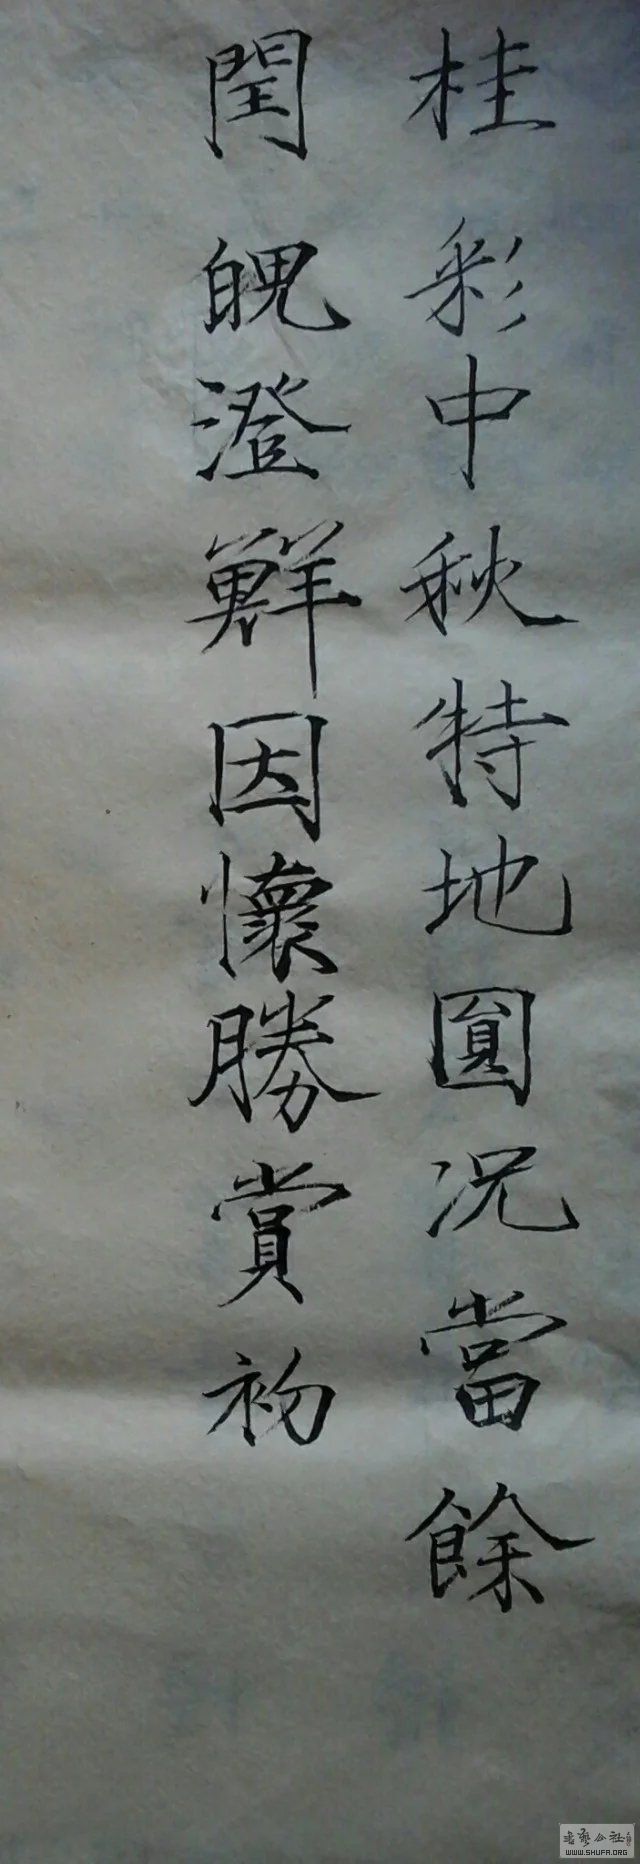 桂彩中秋特地圓况當餘
閏魄澄鮮因懷勝賞初
书艺公社
WWW.SHUFA.ORG